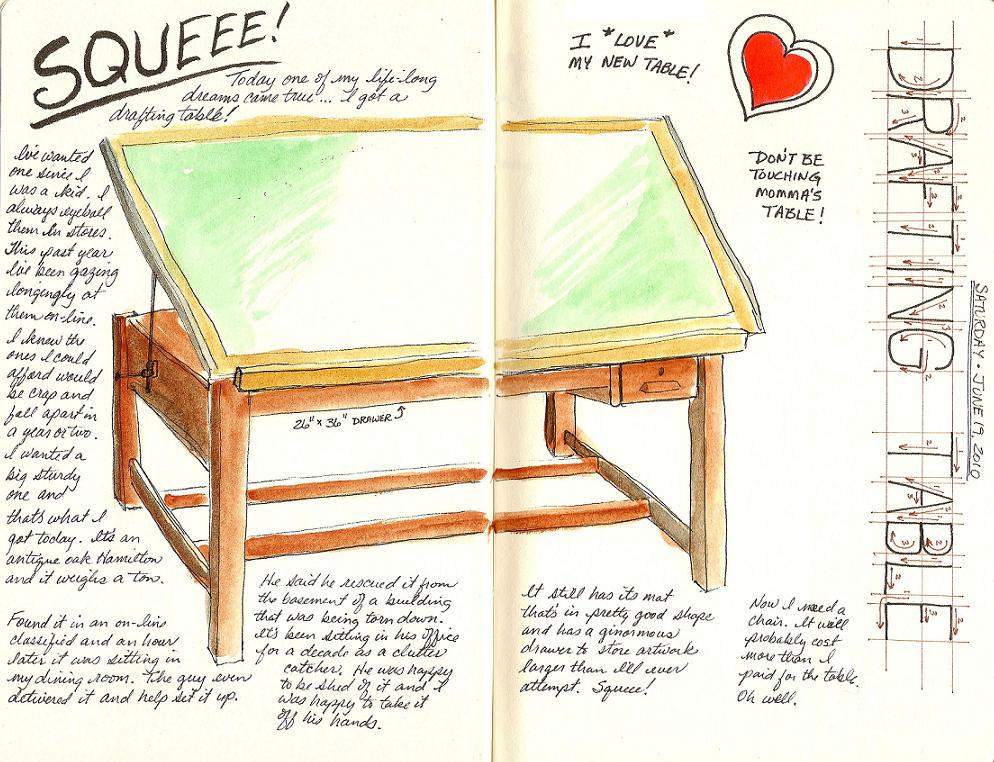 SQUEEE!
Today one of my life-long
dreams came true... I got a
drafting table!
I've wanted
one since I
was a kid. I
always eyeball
them in stores.
This past year
I've been gazing
longingly at
them on-line.
I know the
ones I could
afford would
be crap and
fall apart in
a year or two.
I wanted a
big sturdy
one and
that's what I
got today. It's an
antique oak Hamilton
and it weighs a ton.
Found it in an on-line
classified and an hour
later it was sitting in
my dining room. The guy even
delivered it and help set it up.
26" x 36" DRAWER
He said he rescued it from
the basement of a building
that was being torn down.
It's been sitting in his office
for a decade as a clutter
catcher. He was happy
to be shed of it and I
was happy to take it
off his hands.
I *LOVE*
MY NEW TABLE!
DON'T BE
TOUCHING
MOMMA'S
TABLE!
It still has its mat
that's in pretty good shape
and has a ginormous
drawer to store artwork
larger than I'll ever
attempt. Squeee!
Now I need a
chair. It will
probably cost
more than I
paid for the table.
Oh well.
DRAFTING TABLE
SATURDAY • JUNE 19, 2010